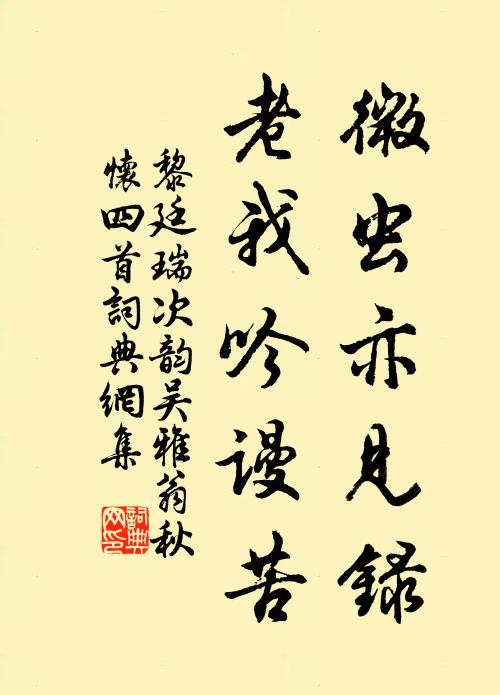 微虫亦見録
老我吟謾苦
黎廷瑞次韵吴雅翁秋
懷四首詞典網集
詞典
网印